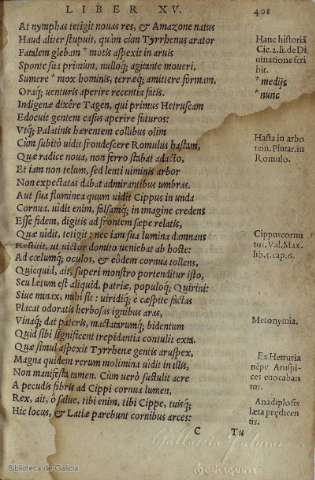 LIBER XV.
401
At nymphas tetigit noua res, & Amazone natus
Haud aliter stupuit, quàm cùm Tyrrhenus arator
Fatalem glebam " motis aspexit in aruis
Sponte sua primùm, nulloq; agitante moueri,
Sumere " mox hominis, terræq; amittere formam,
Oraq; venturis aperire recentia fatis.
Indigenæ dixêre Tagen, qui primus Hetruscam
Edocuit gentem casus aperire futuros:
Vtq; Palatinis hærentem collibus olim
Cùm subitò uidit frondescere Romulus hastam,
Quæ radice noua, non ferro stabat adacto,
Et iam non telum, sed lenti uiminis arbor
Non expectatas dabat admirantibus umbras,
Aut sua fluminea quum uidit Cippus in unda
Cornua. uidit enim, falsamq; in imagine credens
Esse fidem, digitis ad frontem sæpe relatis,
Quæ uidit, tetigit: nec iam sua lumina damnans
Restitit, ut uictor domito ueniebat ab hoste:
Ad cœlumq; oculos, & eôdem cornua tollens,
Quicquid, ait, superi monstro portenditur isto,
Seu lætum est aliquid, patriæ, populoq; Quirini:
Siue minax, mihi sit: uiridiq; è cæspite factas
Placat odoratis herbosas ignibus aras,
Vinaq; dat pateris, mactatarumq; bidentum
Quid sibi significent trepidantia consulit exta.
Quæ simul aspexit Tyrrhenæ gentis aruspex,
Magna quidem rerum molimina uidit in illis,
Non manifesta tamen. Cùm uerò sustulit acre
A pecudis fibris ad Cippi cornua lumen,
Rex, ait, ô salue, tibi enim, tibi Cippe, tuisq;
Hic locus, & Latiæ parebunt cornibus arces:
C Tu
Hanc historiã
Cic. 2. li. de Di
uinatione scri
bit.
" medijs
" nunc
Hasta in arbo
rem. Plutar. in
Romulo.
Cippus cornu
tus. Val. Max.
lib. 5. cap. 6.
Metonymia.
Ex Hetruria
ces euocaban
tur.
Anadiplosis
læta prædicen
tis.
Biblioteca de Galicia